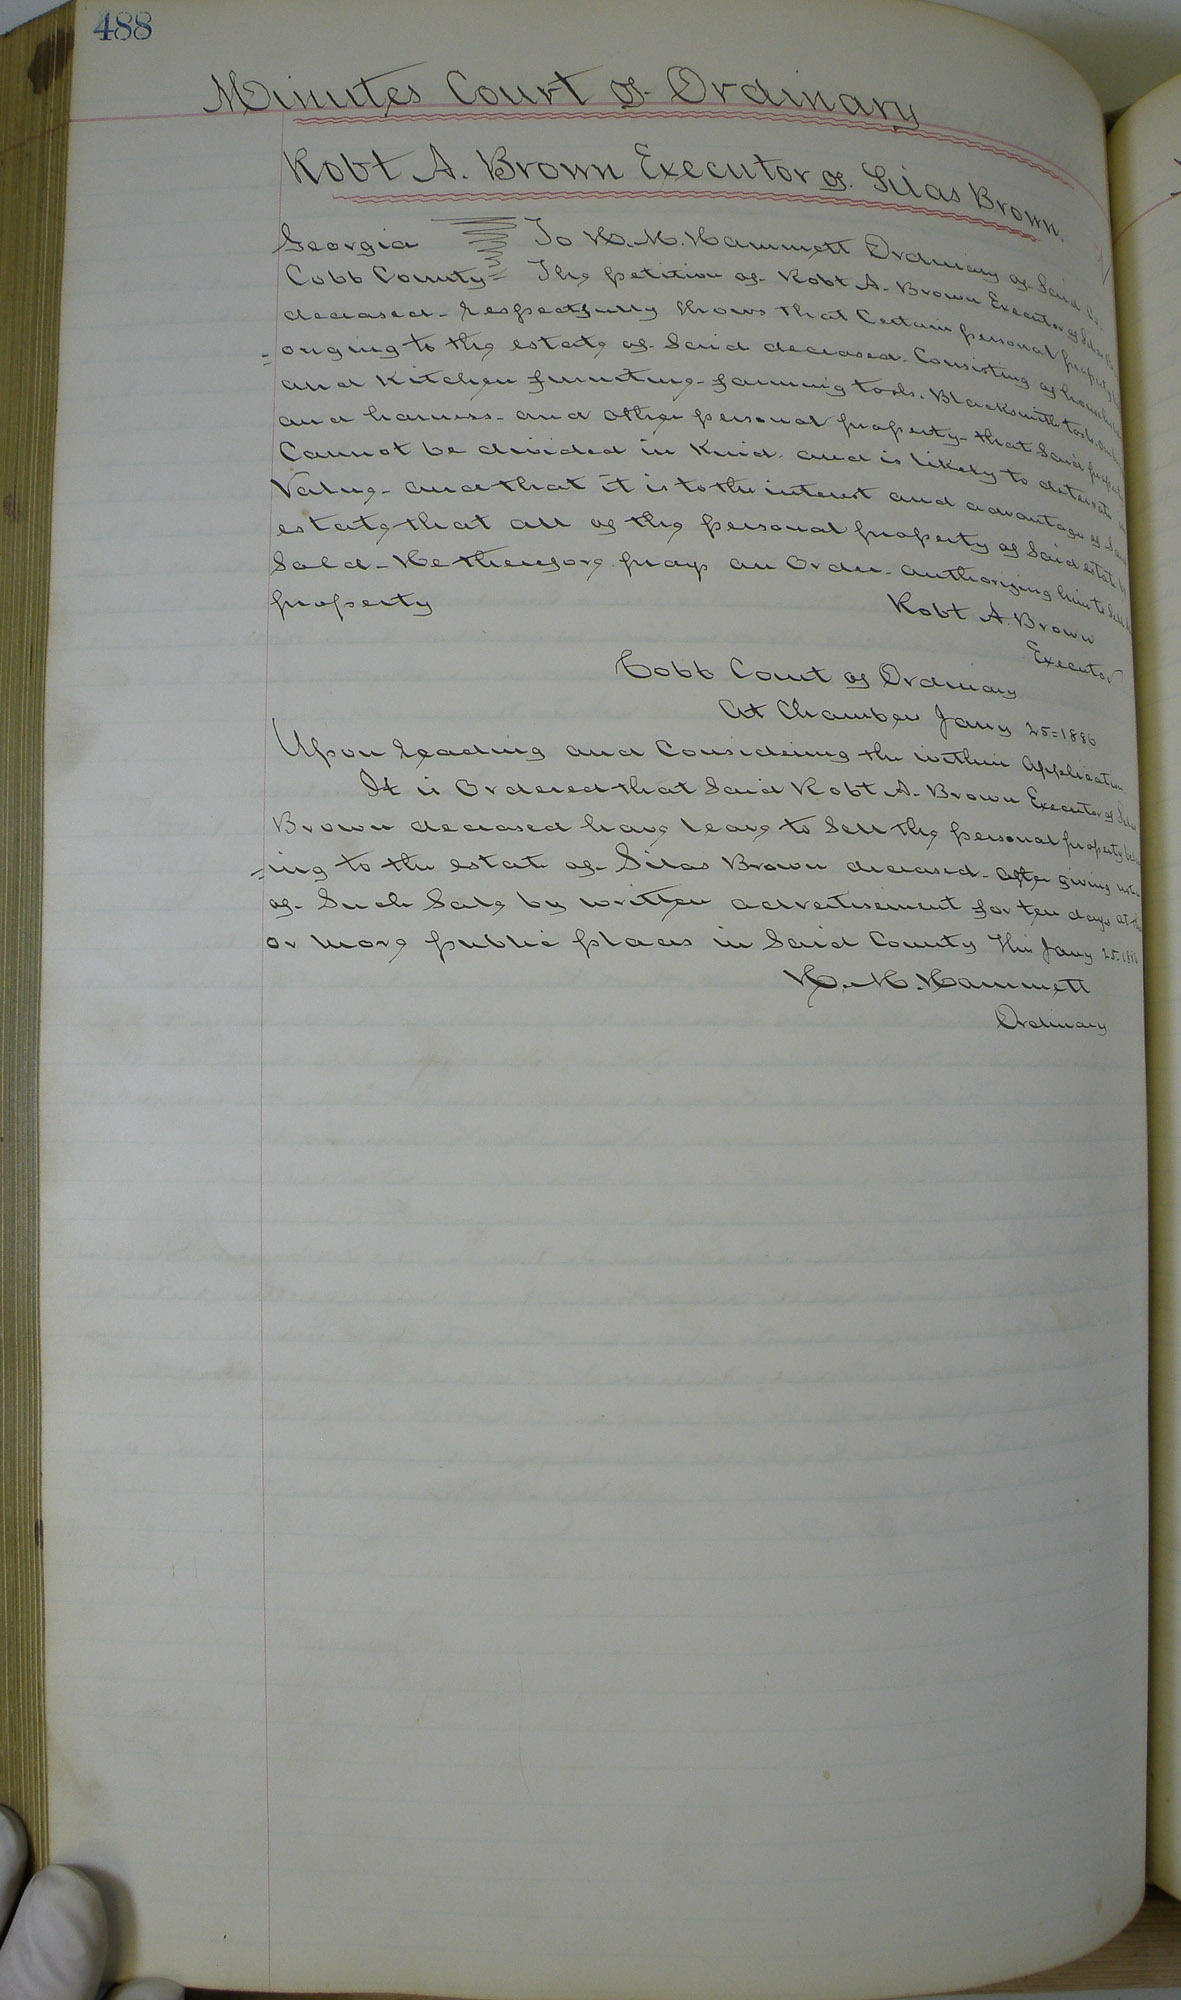 488
Minutes Court of Ordinary
Robt A. Brown Executor of Silas Brown.
Georgia To H. M. Hammett Ordinary of Said Co.
Cobb County The petition of Robt A. Brown Executor of Silas
deceased respectfully shows that Certain personal property
onging to the estate of Said deceased. Consisting of household
and Kitchen furniture farming tools. Blacksmith tools
and harness and other personal property that Said property
Cannot be divided in Kind. and is likely to deteriate in
Value and that it is to the interest and advantage of Said
estate that all of the personal property of Said estate be
Sold. He therefore prays an Order authorizing him to Sell
property Robt A. Brown
Executor
Cobb Court of Ordinary
At Chamber Jany 25=1886
Upon reading and Considering the within Application
It is Ordered that Said Robt A. Brown Executor of Silas
Brown deceased have leave to Sell the personal property
=ing to the estate of Silas Brown deceased. After giving
of Such Sale by written advertisement for ten days at
or more public places in Said County This Jany 25.
H. M. Hammett
Ordinary